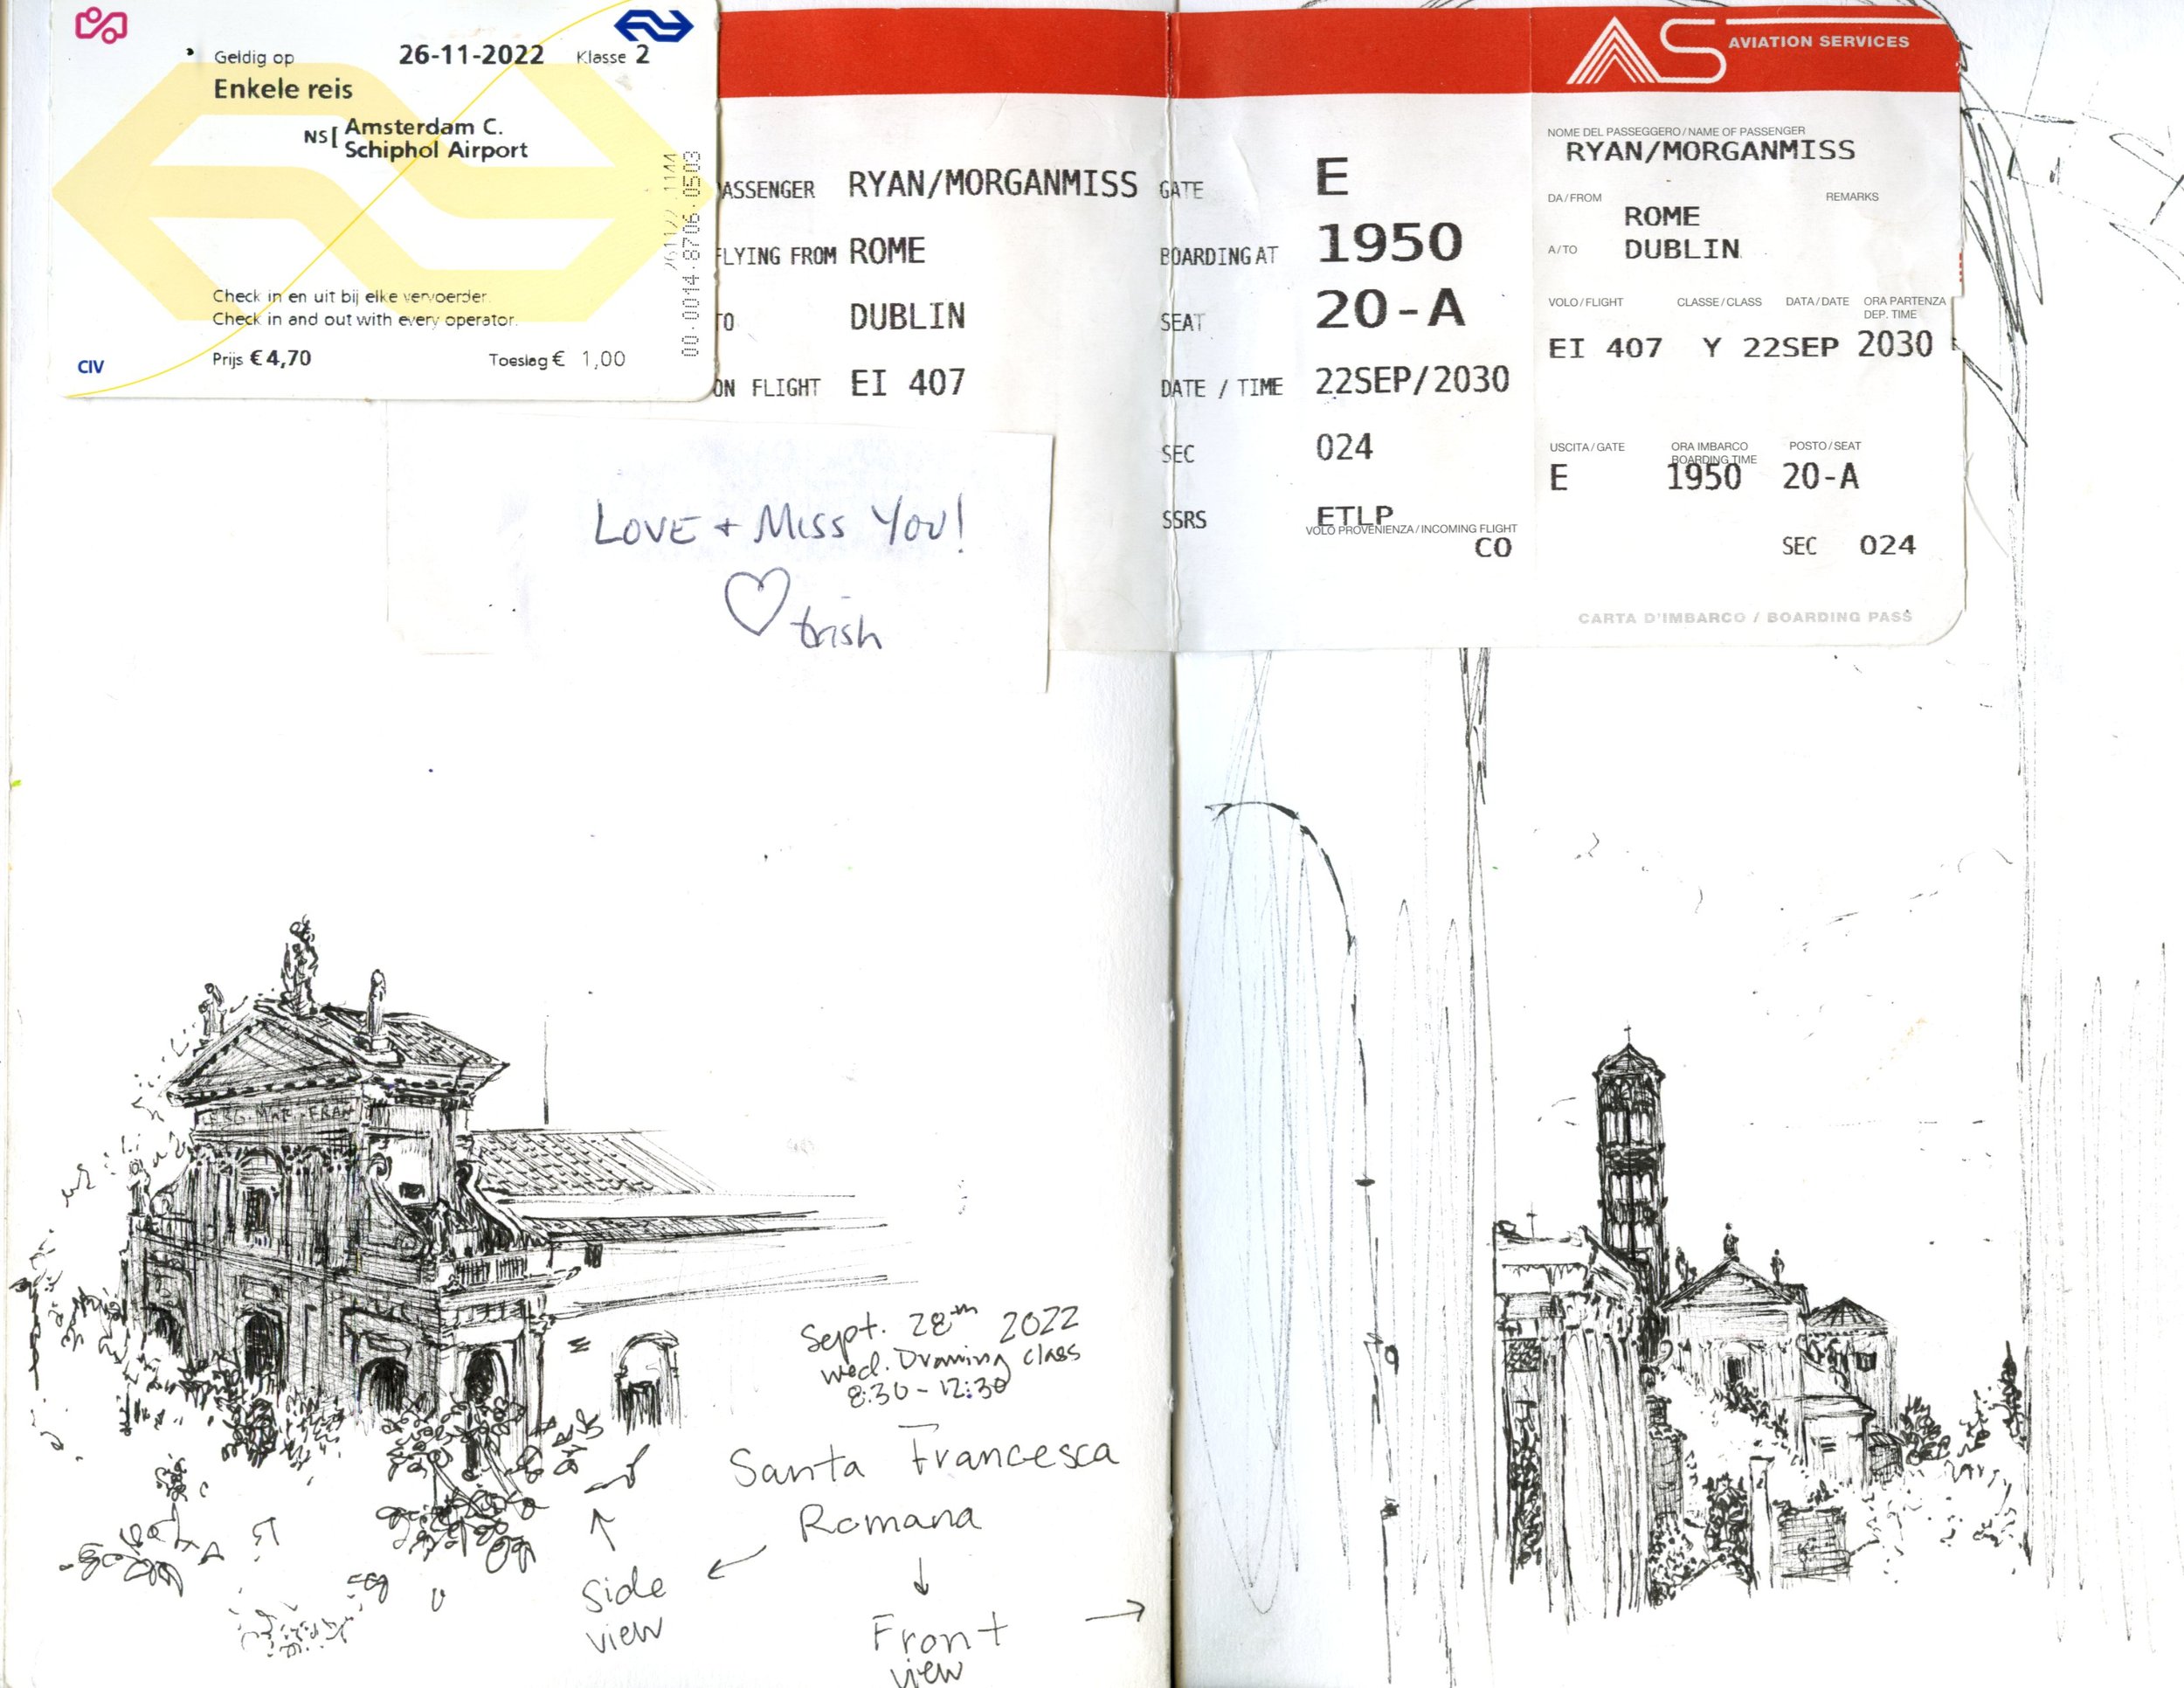 Geldig op 26-11-2022 Klasse 2
Enkele reis
NS[ Amsterdam C.
Schiphol Airport
Check in en uit bij elke vervoerder.
Check in and out with every operator.
CIV Prijs € 4,70 Toeslag € 1,00
00·0014·8706·0503
ASSENGER RYAN/MORGANMISS
LYING FROM ROME
TO DUBLIN
ON FLIGHT EI 407
GATE E
BOARDING AT 1950
SEAT 20-A
DATE / TIME 22SEP/2030
SEC 024
SSRS ETLP
VOLO PROVENIENZA/INCOMING FLIGHT
CO
AS AVIATION SERVICES
NOME DEL PASSEGGERO/NAME OF PASSENGER
RYAN/MORGANMISS
DA/FROM REMARKS
ROME
A/TO DUBLIN
VOLO/FLIGHT CLASSE/CLASS DATA/DATE ORA PARTENZA
DEP. TIME
EI 407 Y 22SEP 2030
USCITA/GATE ORA IMBARCO POSTO/SEAT
BOARDING TIME
E 1950 20-A
SEC 024
CARTA D'IMBARCO / BOARDING PASS
LOVE + MISS YOU!
trish
Sept. 28th 2022
wed. Drawing class
8:30 - 12:30
Santa Francesca
Romana
Side
view
Front
view